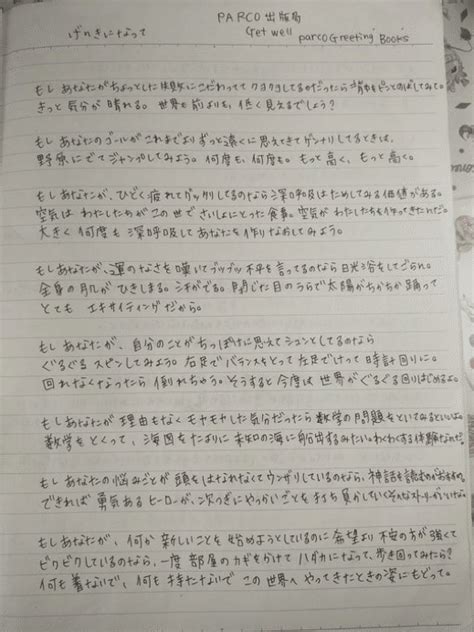 PARCO出版局
げんきになって
Get well
parco Greeting Books
もしあなたがちょっとした失敗にこだわってクヨクヨしてるのだったら背中をピンとのばしてみて。
きっと気分が晴れる。世界も前よりも、低く見えるでしょう？
もしあなたのゴールがこれまでよりずっと遠くに思えてきてゲンナリしてるときは、
野原にでてジャンプしてみよう。何度も、何度も。もっと高く、もっと高く。
もしあなたが、ひどく疲れてグッタリしてるのなら深呼吸はためしてみる価値がある。
空気はわたしたちがこの世でさいしょにとった食事。空気がわたしたちを作ってきたんだ。
大きく何度も深呼吸してあなたを作りなおしてみよう。
もしあなたが、運のなさを嘆いてブツブツ不平を言ってるのなら日光浴をしてごらん。
全身の肌がひきしまる。シネがでる。閉じた目のうらで太陽がちかちか踊って
とてもエキサイティングだから。
もしあなたが、自分のことがちっぽけに思えてシュンとしてるのなら
ぐるぐるスピンしてみよう。右足でバランスをとって左足でけって時計回りに。
回れなくなったら倒れちゃう。そうすると今度は世界がぐるぐる回りはじめるよ。
もしあなたが理由もなくモヤモヤした気分だったら数学の問題をといてみるといいよ。
数学をとくって、海図をたよりに未知の海に船出するみたいなわくわくする体験なのだ。
もしあなたの悩みごとが頭をはなれなくてウンザリしているのなら、神話を読むのがおすすめ。
できれば勇気あるヒーローが、次つぎにやっかいごとを打ち負かしていくそんなストーリーがいいな。
もしあなたが、何か新しいことを始めようとしているのに希望より不安の方が強くて
ビクビクしているのなら、一度部屋のカギをかけてハダカになって、歩き回ってみたら？
何も着ないで、何も持たないでこの世界へやってきたときの姿にもどって。